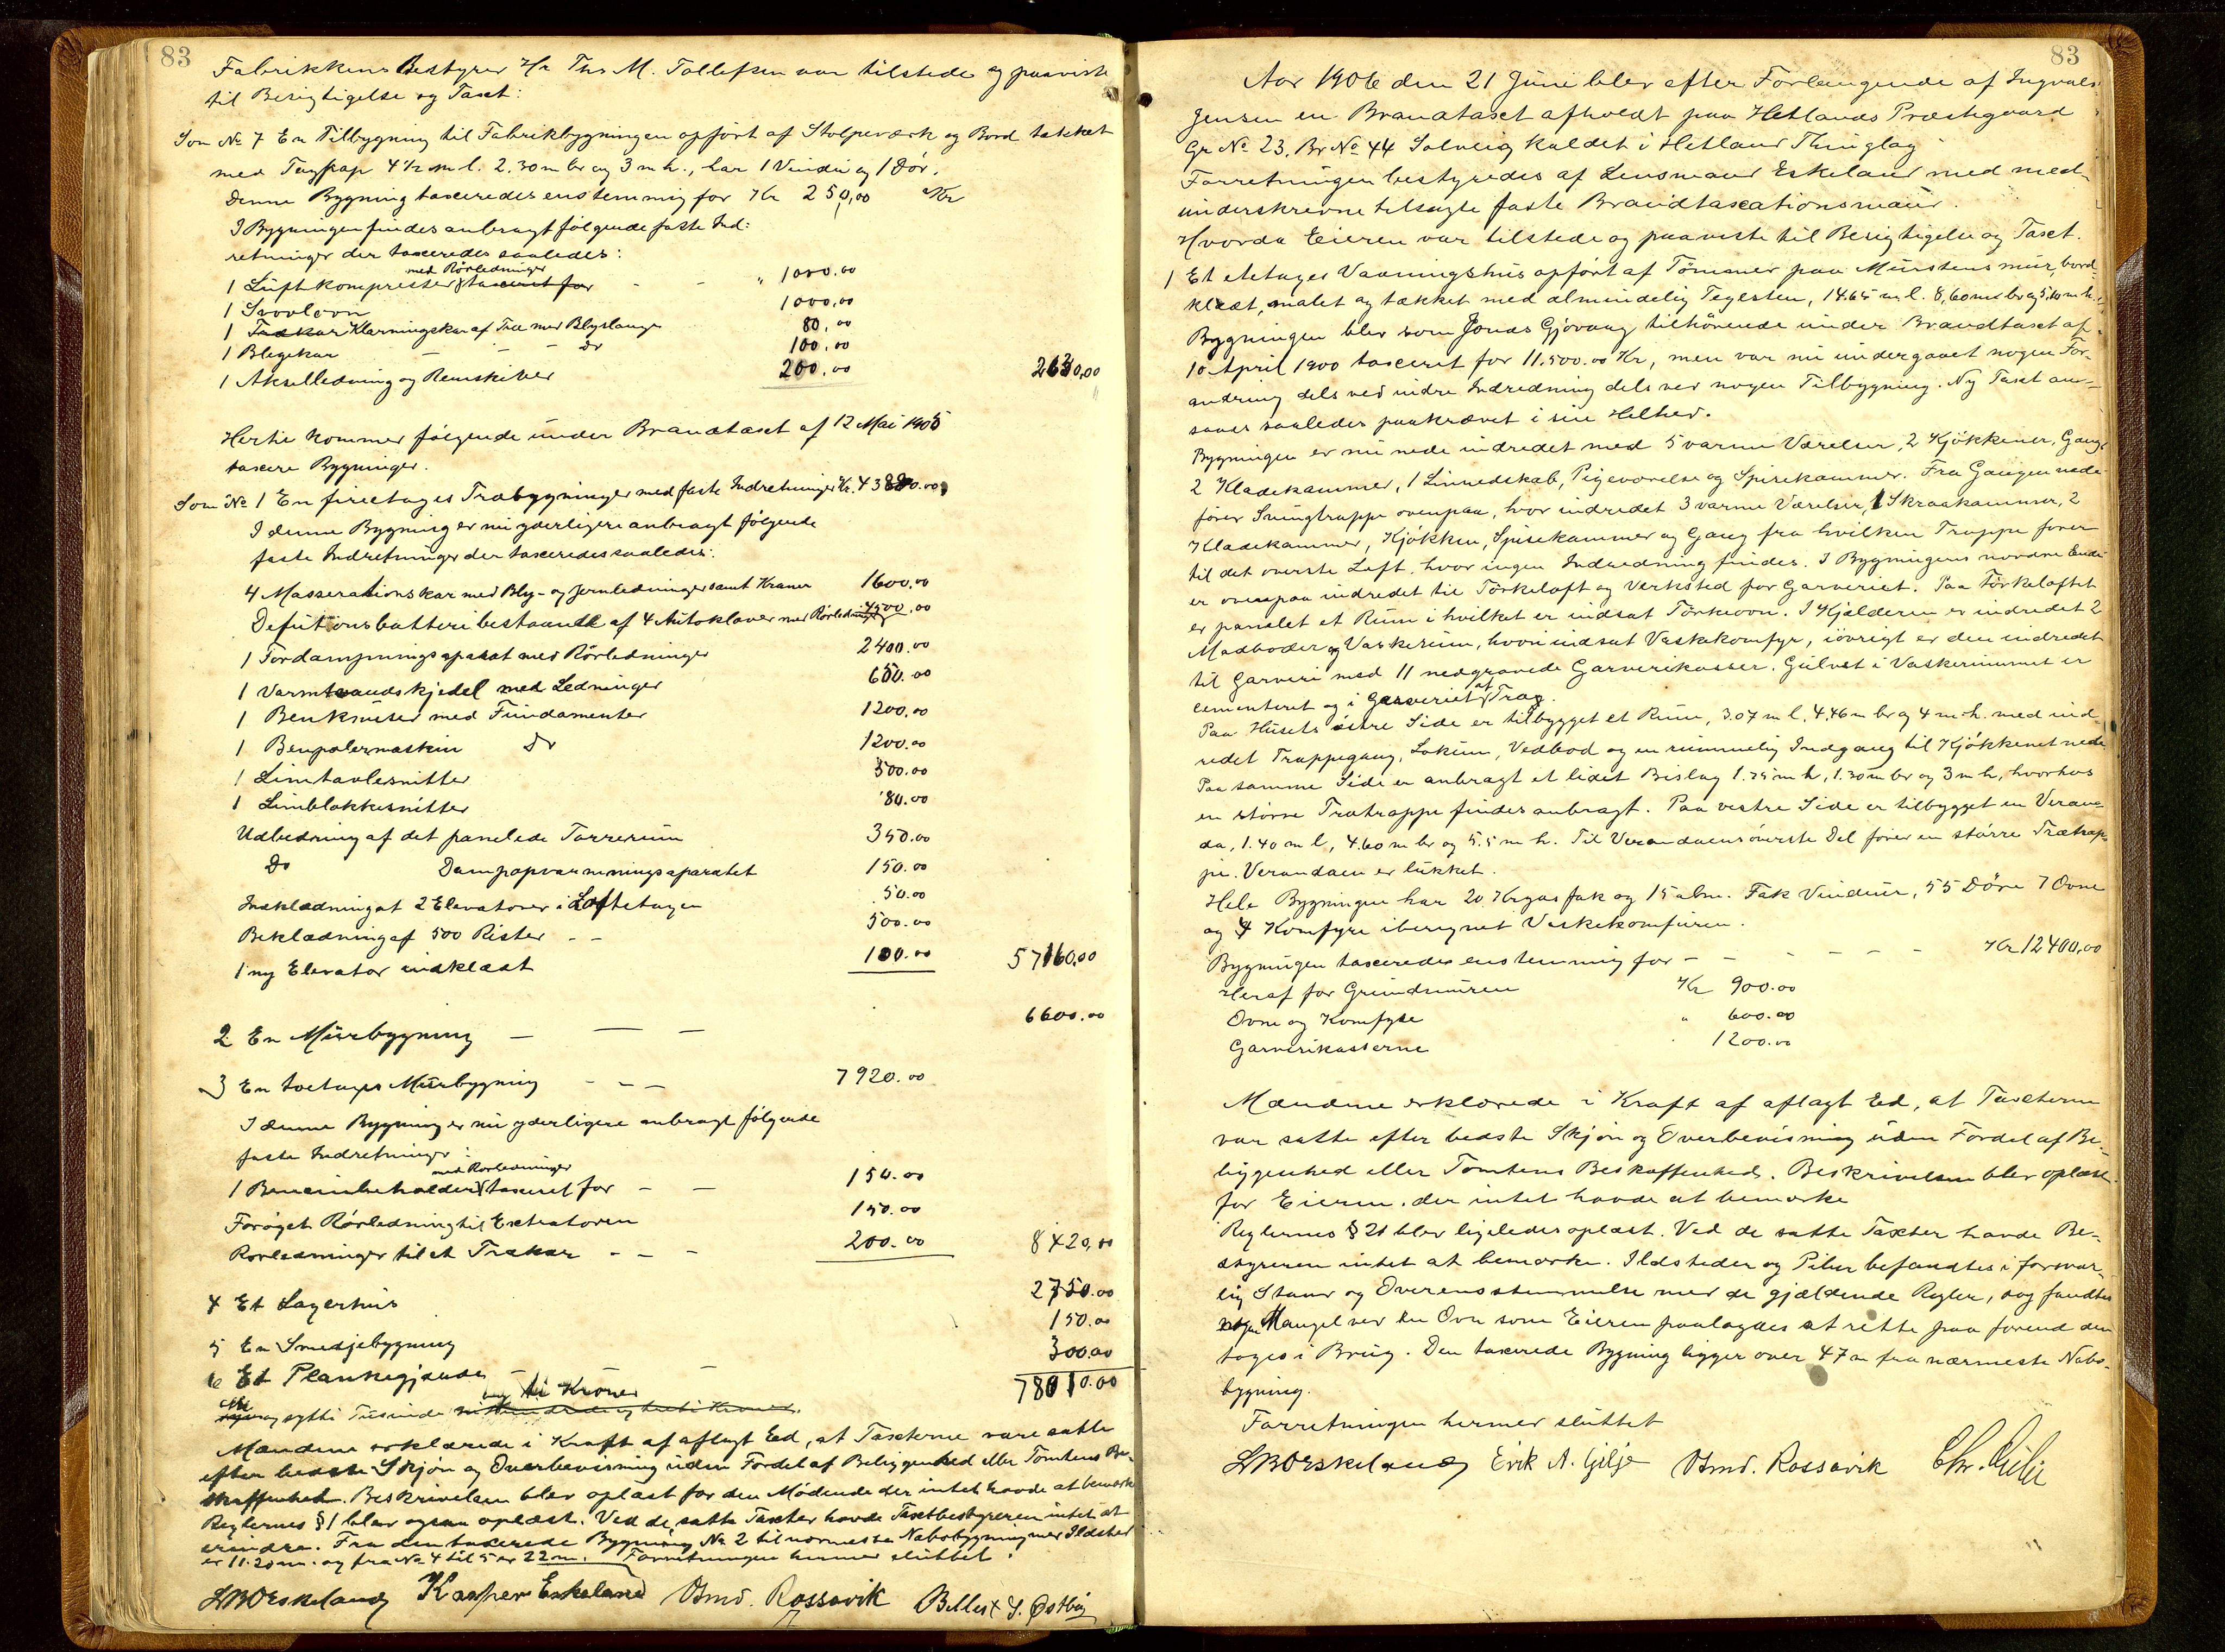 83
Fabrikkens Bestyrer Hr Ths M. Tollefsen var tilstede og paaviste
til Besigtigelse og Taxt:
Som No 7 En Tilbygning til Fabrikbygningen opført af Stolpeværk og Bord tækket
med Tagpap 4½ m l. 2.30 m br og 3 m h., har 1 Vindu og 1 Dør.
Denne Bygning taxeredes enstemmig for Kr 250,00 Kr
I Bygningen findes anbragt følgende faste Ind:
retninger der taxeredes saaledes:
med Rørledninger
1 Luftkompresser taxeret for - - " 1000.00
1 Svovlovn 1000,00
1 Klarningskar af Træ med Blyslange 80,00
1 Blegekar - - - do 100.00
1 Akselledning og Remskiver 200,00 2630,00
Hertil kommer følgende under Brandtaxt af 12 Mai 1905
taxere Bygninger.
Som No 1 En firetages Træbygninger med faste Indretninger Kr. 43880.00
I denne Bygning er nu yderligere anbragt følgende
faste Indretninger der taxeredes saaledes:
4 Masserationskar med Bly- og Jernledninger samt Kraner 1600,00
bestaaende af 4 Autoklaver med Rørledninger 4500,00
1 Fordampningsaparat med Rørledninger 2400.00
1 Varmtvandskjedel med Ledninger 600.00
1 Benknuser med Fundamenter 1200.00
1 Benpolermaskin Do 1200.00
1 Limtavlesnitter 500.00
1 Limblokkesnitter 80.00
Udbedring af det panelede Tørrerum 350.00
Do Dampopvarmningsaparatet 150.00
Indklædning at 2 Elevatorer i Loftetagen 50.00
Beklædning af 500 Rister - - 500.00
1 ny Elevator indklædt 100.00 57160.00
2 En Murbygning - - - 6600.00
3 En toetages Murbygning - - - 7920.00
I denne Bygning er nu yderligere anbragt følgende
faste Indretninger:
med Rørledninger
1 Benzinbeholder taxeret for - - 150.00
Forøget Rørledning til Extratoren 150.00
Rørledninger til et Trækar - - - 200.00 8420,00
4 Et Lagerhus 2750.00
5 En Smedjebygning 150.00
6 Et Plankegjærde - - 300.00
78010.00
og ti Kroner
otte og sytti Tusinde
Mændene erklærede i Kraft af aflagt Ed, at Taxterne vare satte
efter bedste Skjøn og Overbevisning uden Fordel af Beliggenhed eller Tomtens Be-
skaffenhed. Beskrivelsen blev oplæst for den Mødende der intet havde at bemærke
Reglernes § 1 blev ogsaa oplæst. Ved de satte Taxter havde Taxtbestyreren intet at
erindre. Fra den taxerede Bygning No 2 til nærmeste Nabobygning med Ildsted
er 11.20 m. og fra No 4 til 5 er 22 m. Forretningen hermed sluttet.
Kasper Eskeland Osmd. Rossavik S. Østbø
83
Aar 1906 den 21 Juni blev efter Forlangende af Ingvald
Jensen en Brandtaxt afholdt paa Hetlands Præstegaard
Gr No 23. Br No 44 Solveig kaldet i Hetland Thinglag
Forretningen bestyredes af Lensmand Eskeland med med-
underskrevne tilsagte faste Brandtaxationsmænd.
Hvorda Eieren var tilstede og paaviste til Besigtigelse og Taxt.
1 Et etetages Vaaningshus opført af Tømmer paa Murstensmur, bord-
klædt, malet og tækket med almindelig Tegelsten, 14.65 m l. 8,60 m br og 5,10 m h.
Bygningen blev som Jonas Gjøvaag tilhørende under Brandtaxt af
10 April 1900 taxeret for 11.500.00 Kr, men var nu undergaaet nogen For-
andring dels ved indre Indredning dels ved nogen Tilbygning. Ny Taxt an-
saaes saaledes paakrævet i sin Helhed.
Bygningen er nu nede indredet med 5 varme Værelser, 2 Kjøkkener, Gang,
2 Klædekammer, 1 Linnedskab, Pigeværelse og Spisekammer. Fra Gangen nede
fører Svingtrappe ovenpaa, hvor indredet 3 varme Værelser, 1 Skraakammer, 2
Klædekammer, Kjøkken, Spisekammer og Gang fra hvilken Trappe fører
til det øverste Loft, hvor ingen Indredning findes. I Bygningens nordre Ende
er ovenpaa indredet til Tørkeloft og Verksted for Garveriet. Paa Tørkeloftet
er panelet et Rum i hvilket er indsat Tørkeovn. I Kjælderen er indredet 2
Madboder og Vaskerum, hvori indsat Vaskekomfyr, iøvrigt er den indredet
til Garveri med 11 nedgravede Garverikasser. Gulvet i Vaskerummet er
cementeret og i Garveriet af Træ.
Paa Husets østre Side er tilbygget et Rum, 3.07 m l, 4.46 m br og 4 m h. med ind-
redet Trappegang, Lokum, Vedbod og en rummelig Indgang til Kjøkkenet nede.
Paa samme Side er anbragt et lidet Bislag 1.75 m h, 1.30 m br og 3 m h, hvorhos
en større Trætrappe findes anbragt. Paa vestre Side er tilbygget en Veran-
da, 1.40 m l, 4.60 m br og 5.5 m h. Til Verandaens øverste Del fører en større Trætrap-
pe. Verandaen er lukket.
Hele Bygningen har 20 Krgas fak og 15 alm. Fak Vinduer, 55 Døre 7 Ovne
og 4 Komfyre iberegnet Vaskekomfuren.
Bygningen taxeredes enstemmig for - - - - - Kr 12400,00
Heraf for Grundmuren Kr 900.00
Ovne og Komfyre " 600.00
Garverikasserne 1200.00
Mændene erklærede i Kraft af aflagt Ed, at Taxterne
var satte efter bedste Skjøn og Overbevisning uden Fordel af Be-
liggenhed eller Tomtens Beskaffenhed. Beskrivelsen blev oplæst
for Eieren, der intet havde at bemærke
Reglernes § 21 blev ligeledes oplæst. Ved de satte Taxter havde Be-
styreren intet at bemærke. Ildsteder og Piber befandtes i forsvar-
lig Stand og Overensstemmelse med de gjældende Regler, dog fandtes
nogen Mangel ved en Ovn som Eieren paalagdes at rette paa forend den
toges i Brug. Den taxerede Bygning ligger over 47 m fra nærmeste Nabo-
bygning.
Forretningen hermed sluttet
Erik A. Gilje Osmd. Rossavik Chr. Gilje